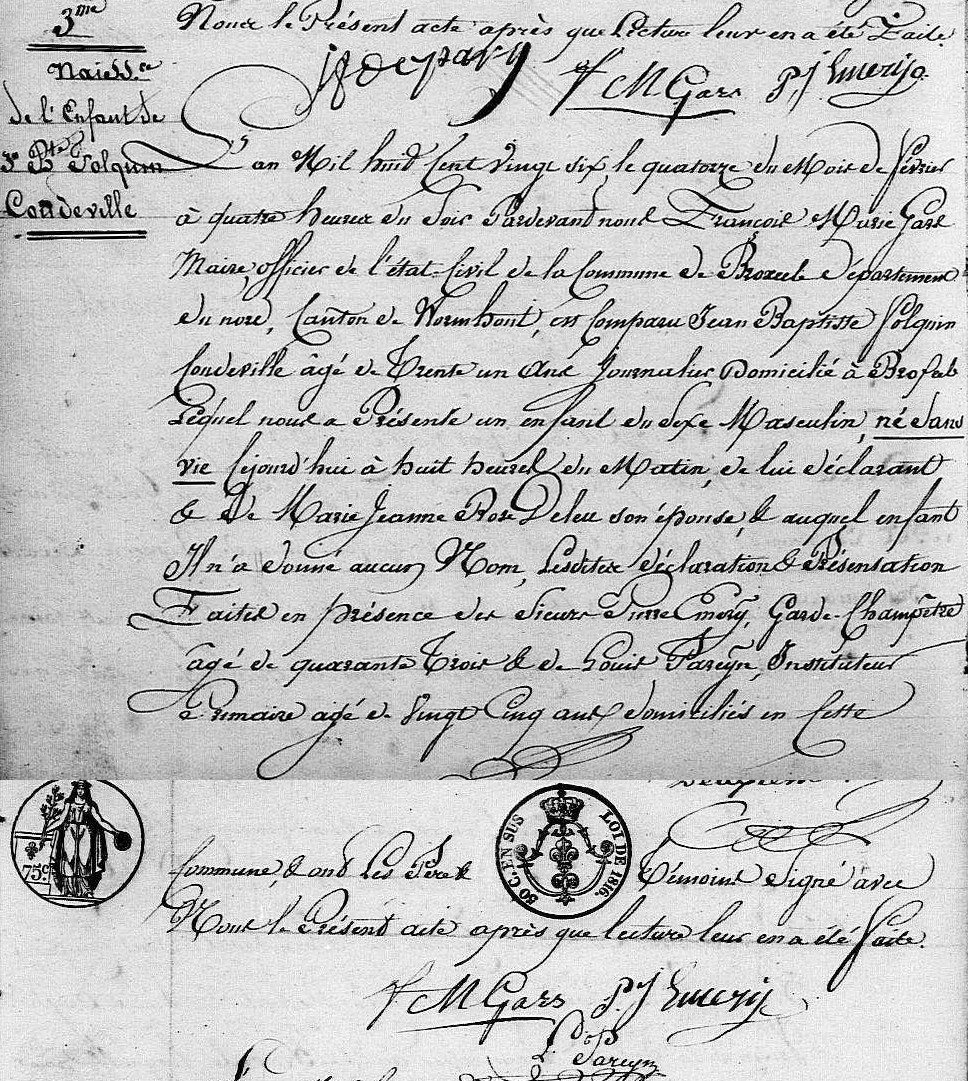 3me
Naiss.ce
de l'Enfant de
Jn Bte folquin
Condeville
Nous le Présent acte après que Lecture leur en a été Faite.
fMGars P.J Emerij
L'an Mil huit Cent Vingt six, le quatorze du Mois de févrior
à quatre heures du Soir Pardevant nous François Marie Gars
Maire, officier de l'état-Civil de la Commune de Broxeele Département
du nord, Canton de Wormhout, est Comparu Jean Baptiste folquin
Condeville âgé de Trente un Ans Journalier Domicilié à
Lequel nous a Présenté un enfant du Sexe Masculin, né sans
vie Cejourd'hui à huit heures du Matin, de lui déclarant
& de Marie Jeanne Rose Deleu son épouse, & auquel enfant
Il n'a donné aucun Nom, Lesdites déclaration & Présentation
Faites en présence des Sieurs Pierre Emery, Garde-Champêtre
âgé de quarante Trois & de Louis Pareyn, Instituteur
Primaire agé de Vingt Cinq ans domiciliés en Cette
75c
80 C. EN SUS
LOI DE 1816.
Commune, & ont Les Père & Témoins Signé avec
Nous le Présent acte après que lecture leur en a été faite.
fMGars P.J Emerij
Pareyn